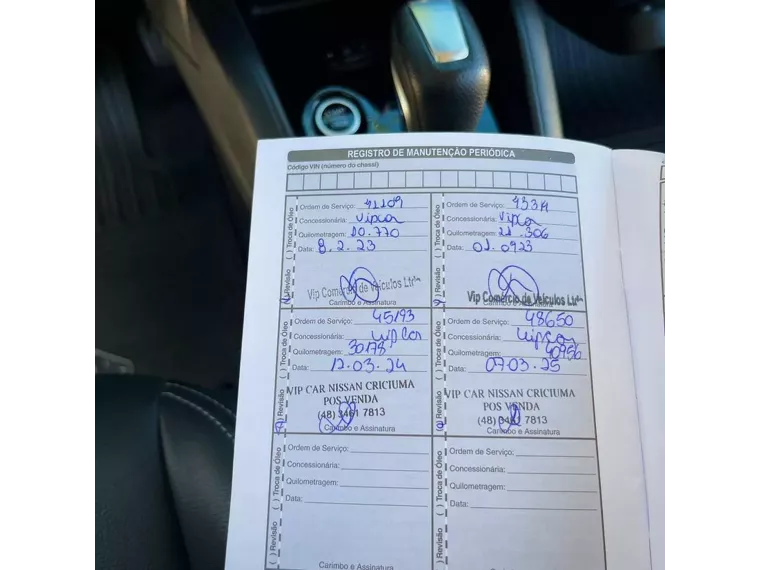 REGISTRO DE MANUTENÇÃO PERIÓDICA
Código VIN (número do chassi)
( ) Revisão ( ) Troca de Óleo
Ordem de Serviço: 41109
Concessionária: Vipcar
Quilometragem: 10.770
Data: 8.2.23
Vip Comércio de Veículos Ltda
Carimbo e Assinatura
( ) Revisão ( ) Troca de Óleo
Ordem de Serviço:
Concessionária: Vipcar
Quilometragem: 21.306
Data: 01.0923
Vip Comércio de Veículos Ltda
Carimbo e Assinatura
( ) Revisão ( ) Troca de Óleo
Ordem de Serviço: 45193
Concessionária: Vipcar
Quilometragem: 30178
Data: 12.03.24
VIP CAR NISSAN CRICIUMA
POS VENDA
(48) 3461 7813
Carimbo e Assinatura
( ) Revisão ( ) Troca de Óleo
Ordem de Serviço: 48650
Concessionária: Vipcar
Quilometragem: 40956
Data: 07.03.25
VIP CAR NISSAN CRICIUMA
POS VENDA
(48) 3461 7813
Carimbo e Assinatura
( ) Revisão ( ) Troca de Óleo
Ordem de Serviço:
Concessionária:
Quilometragem:
Data:
Carimbo e Assinatura
( ) Revisão ( ) Troca de Óleo
Ordem de Serviço:
Concessionária:
Quilometragem:
Data:
Carimbo e Assinatura